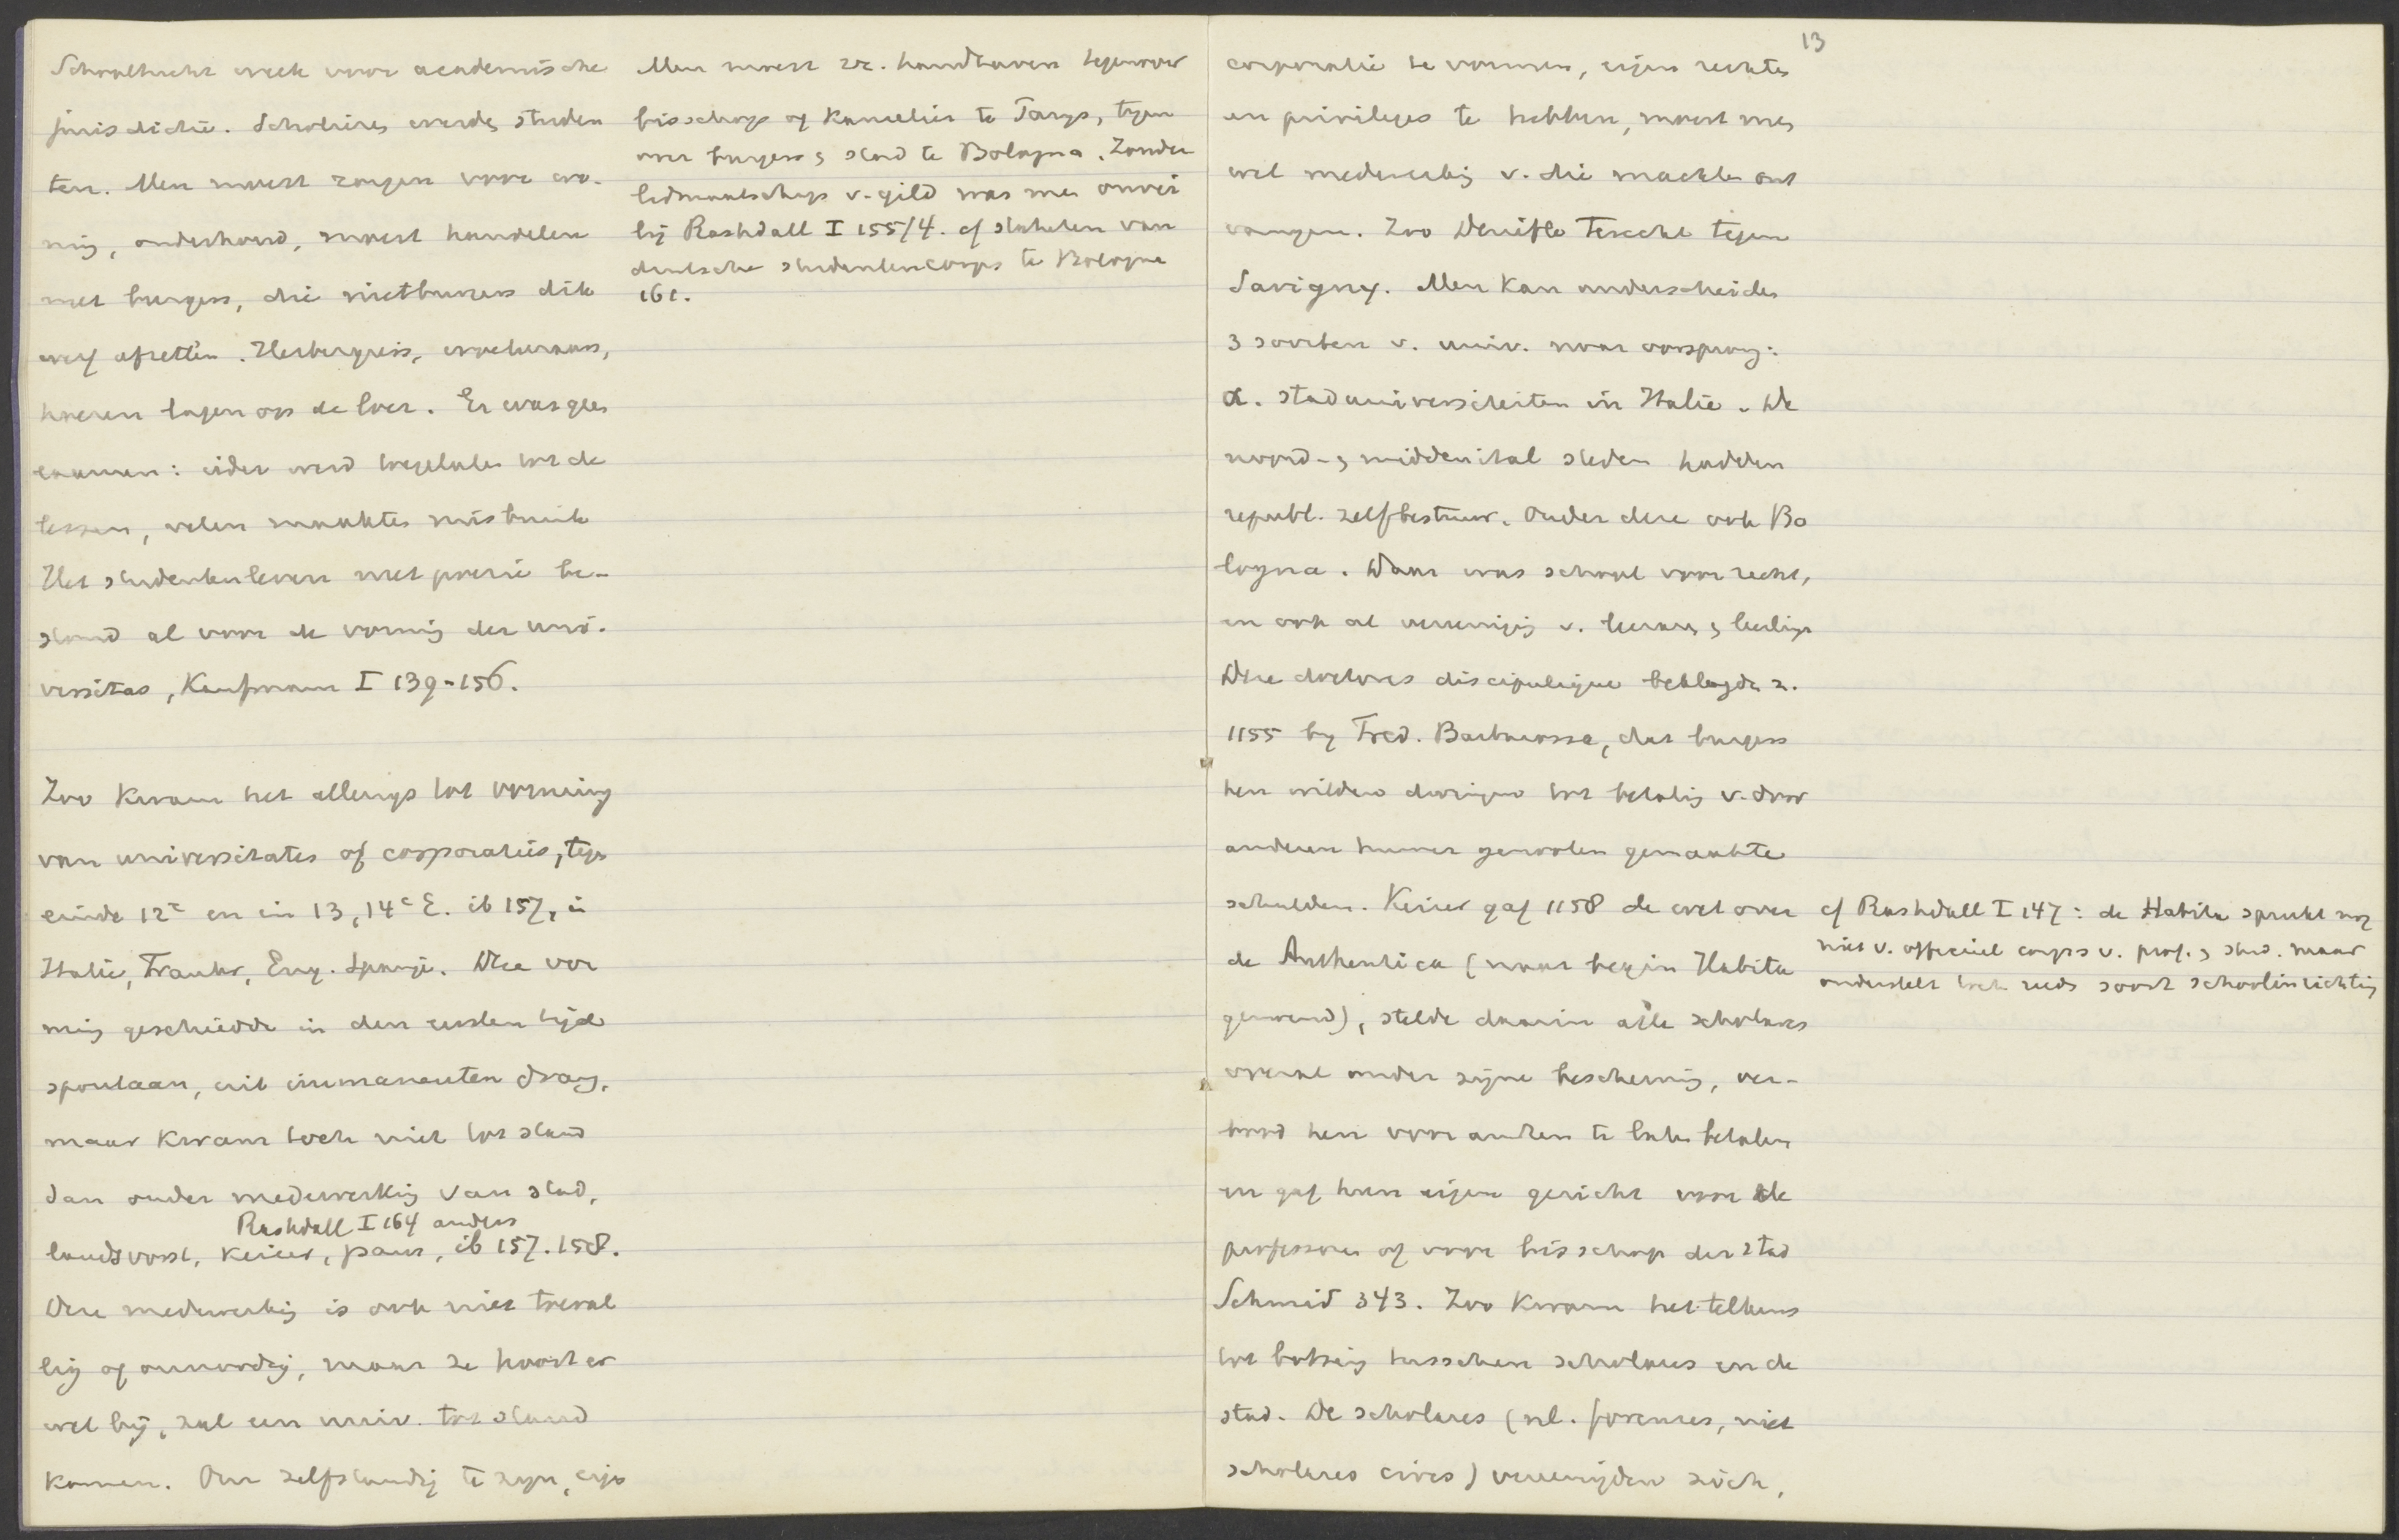 Schooltucht week voor academische
jurisdictie. Scholires werden studen
ten. Men moest zorgen voor wo-
ning, onderhoud, moest handelen
met burgers, die nietburgers dik
werf afzetten. Herbergiers, woekeraars,
hoeren lagen op de loer. Er was geen
examen: ieder werd toegelaten tot de
lessen, velen maakten misbruik
Het studentenleven met poezie be-
stond al voor de vorming der uni-
versitas, Kaufmann I 139-156.
Zoo kwam het allengs tot vorming
van universitates of corporaties, tegen
einde 12e en in 13, 14e E. ib 157, in
Italie, Frankr, Eng. Spanje. Deze vor
ming geschiedde in den eersten tijd
spontaan, uit immanenten drang,
maar kwam toch niet tot stand
dan onder medewerking van stad,
Rashdall I 164 anders
landsvorst, keizer, paus, ib 157.158.
Deze medewerking is ook niet toeval
lig of onnoodig, maar ze hoort er
wel bij, zal een univ. tot stand
komen. Om zelfstandig te zijn, eigen
Men moest zr. handhaven tegenover
bisschop of kanselier te Parys, tegen
over burgers & stad te Bologna. Zonder
lidmaatschap v. gild was men onvei
lig Rashdall I 155/4. cf statuten van
deutsche studentencorps te Bologna
161.
13
corporatie te vormen, eigen rechten
en privileges te hebben, moest men
wel medewerking v. die machten ont
vangen. Zoo Denifle terecht tegen
Savigny. Men kan onderscheiden
3 soorten v. univ. naar oorsprong:
α. stad universiteiten in Italie. De
noord- & middenital steden hadden
republ. zelfbestuur. Onder deze ook Bo
logna. Daar was school voor recht,
en ook al vereeniging v. leeraars & leerlingen
Deze doctores discipulique beklaagden z.
1155 by Fred. Barbarossa, dat burgers
hen wilden dwingen tot betaling v. door
anderen hunner genooten gemaakte
schulden. Keizer gaf 1158 de wet over
de Authentica (naar begin Habita
genoemd), stelde daarin alle scholares
overal onder zijne bescherming, ver-
bood hen voor anderen te laten betalen
en gaf hun eigen gericht voor de
professoren of voor bisschop der stad
Schmid 343. Zoo kwam het telkens
tot botsing tusschen scholares en de
stad. De scholares (nl. forenses, niet
scholares cives) vereenigden zich,
cf Rashdall I 147: de Habita spreekt nog
niet v. officieel corps v. prof. & stud. maar
onderstelt toch reeds soort schoolinrichting